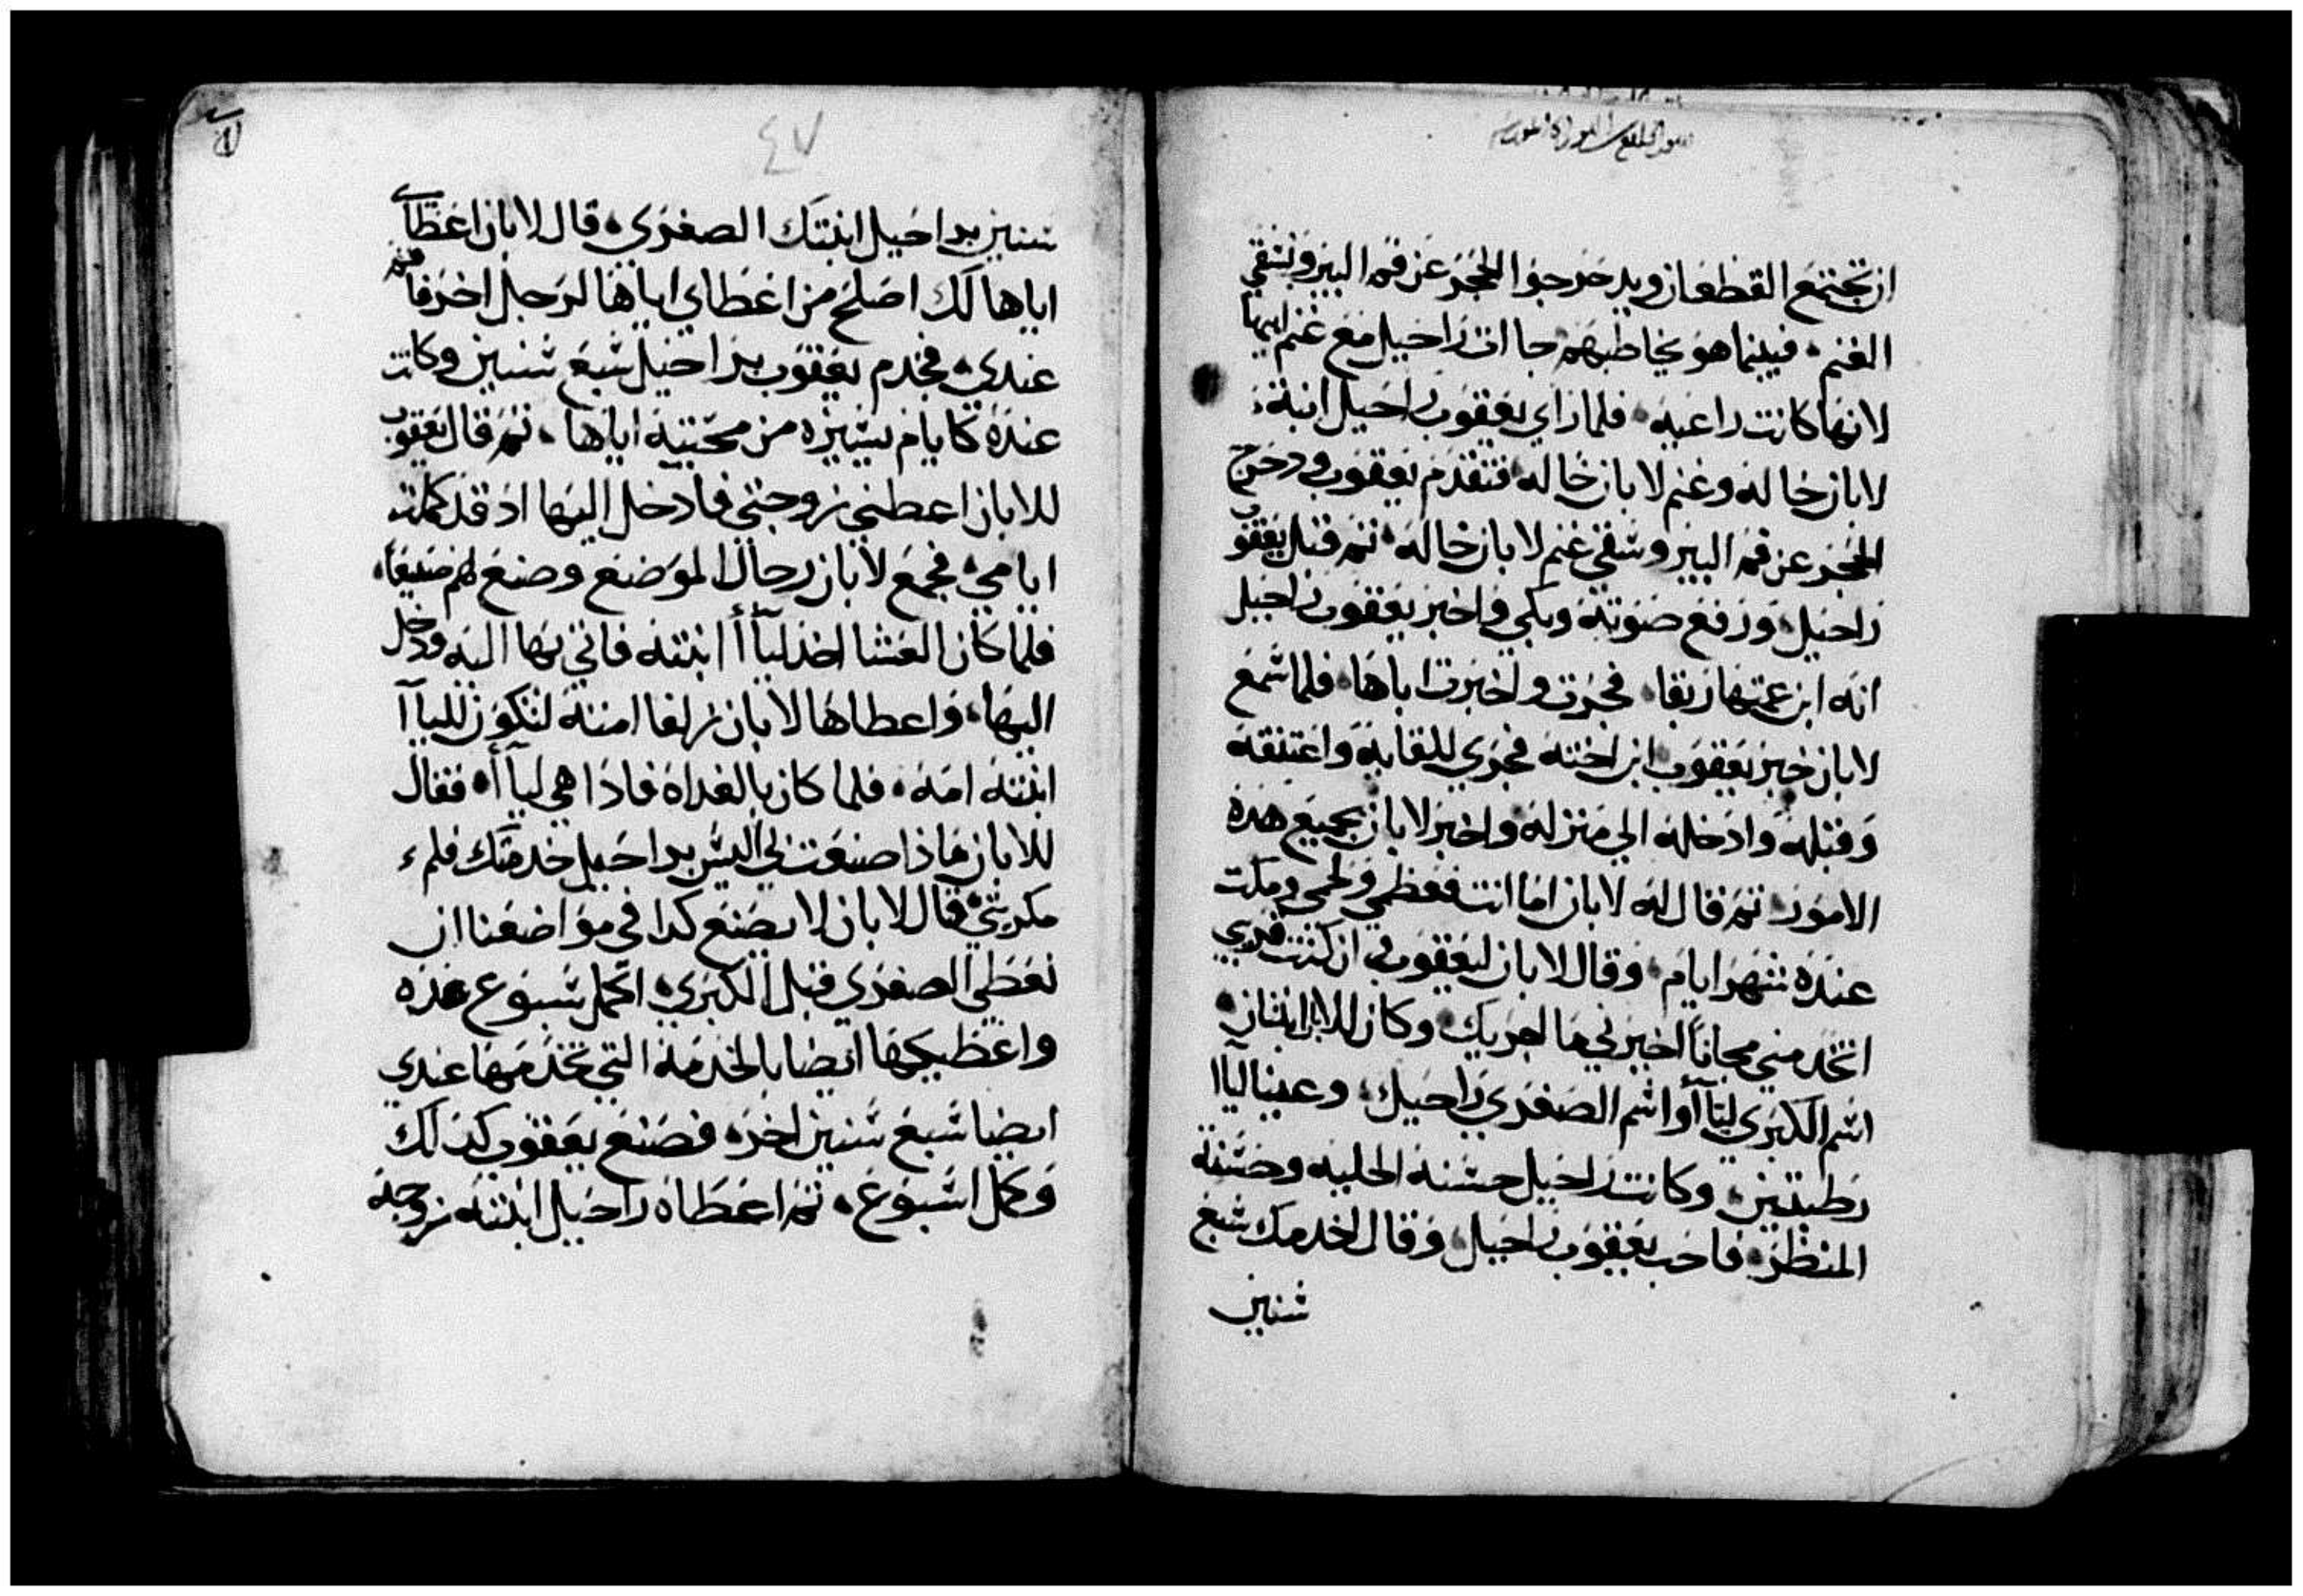 ان تجتمع القطعان ويدحرجوا الحجر عن فم البير ونسقي
الغنم فبينما هو يخاطبهم جاات راحيل مع غنم ابيها
لانها كانت راعيه فلما راي يعقوب راحيل ابنة
لابان خاله وغنم لابان خاله فتقدم يعقوب ودحرج
الحجر عن فم البير وسقي غنم لابان خاله ثم قبل يعقوب
راحيل ورفع صوته وبكي واخبر يعقوب راحيل
انه ابن عمتها ربقا فجرت واخبرت اباها فلما سمع
لابان خبر يعقوب ابن اخته فجري للقايه واعتنقه
وقبله وادخله الي منزله واخبر لابان بجميع هذه
الامور ثم قال له لابان اما انت فعظمي ولحمي ومكت
عنده شهر ايام وقال لابان ليعقوب ان كنت قريبي
اتخدمني مجاناً اخبرني ما اجريك وكان للابان ابنتان
اسم الكبري ليآأ واسم الصغري راحيل وعينا ليآا
رطبتين وكانت راحيل حسنة الحليه وحسنة
المنظر فاحب يعقوب راحيل وقال اخدمك سبع
سنين
٤٧
سنين براحيل ابنتك الصغري قال لابان اعطاي
اياها لك اصلح من اعطاي اياها لرجل اخر فاقم
عندي فخدم يعقوب براحيل سبع سنين وكانت
عنده كايام يسيره من محبته اياها ثم قال يعقوب
للابان اعطني زوجتي فادخل اليها اذ قد كملت
ايامي فجمع لابان رجال الموضع وصنع لهم ضيفاً
فلما كان العشا اخذ ليآأ ابنته فاتي بها اليه ودخل
اليها واعطاها لابان زلفا امته لتكون لليآآ
ابنته امه فلما كان بالغداة فاذا هي ليآأ فقال
للابان ماذا صنعت بي اليس براحيل خدمتك فلم
مكرت بي قال لابان لا يصنع كدا في مواضعنا ان
نعطي الصغري قبل الكبري اكمل سبوع هذه
واعطيكها ايضا بالخدمة التي تخدمها عندي
ايضا سبع سنين اخر فصنع يعقوب كذلك
وكمل اسبوع ثم اعطاه راحيل ابنته زوجة